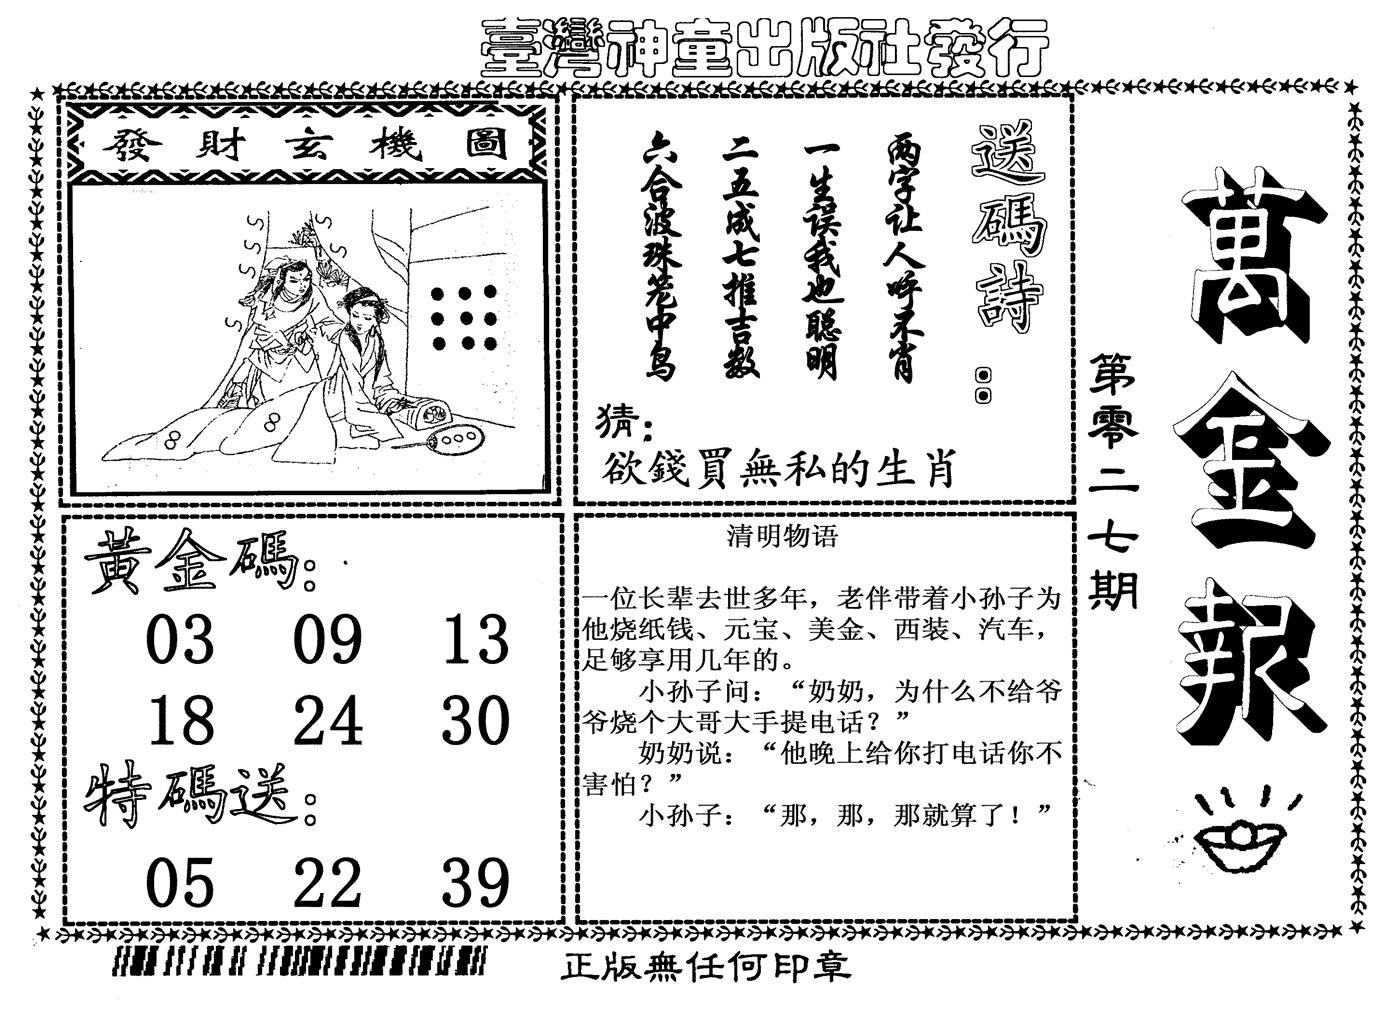 臺灣神童出版社發行
萬金報
第零二七期
發財玄機圖
送碼詩：
两字让人呼不肖
一生误我也聪明
二五成七推吉数
六合波珠笼中鸟
猜：
欲錢買無私的生肖
黃金碼：
03 09 13
18 24 30
特碼送：
05 22 39
清明物语
一位长辈去世多年，老伴带着小孙子为
他烧纸钱、元宝、美金、西装、汽车，
足够享用几年的。
小孙子问：“奶奶，为什么不给爷
爷烧个大哥大手提电话？”
奶奶说：“他晚上给你打电话你不
害怕？”
小孙子：“那，那，那就算了！”
正版無任何印章